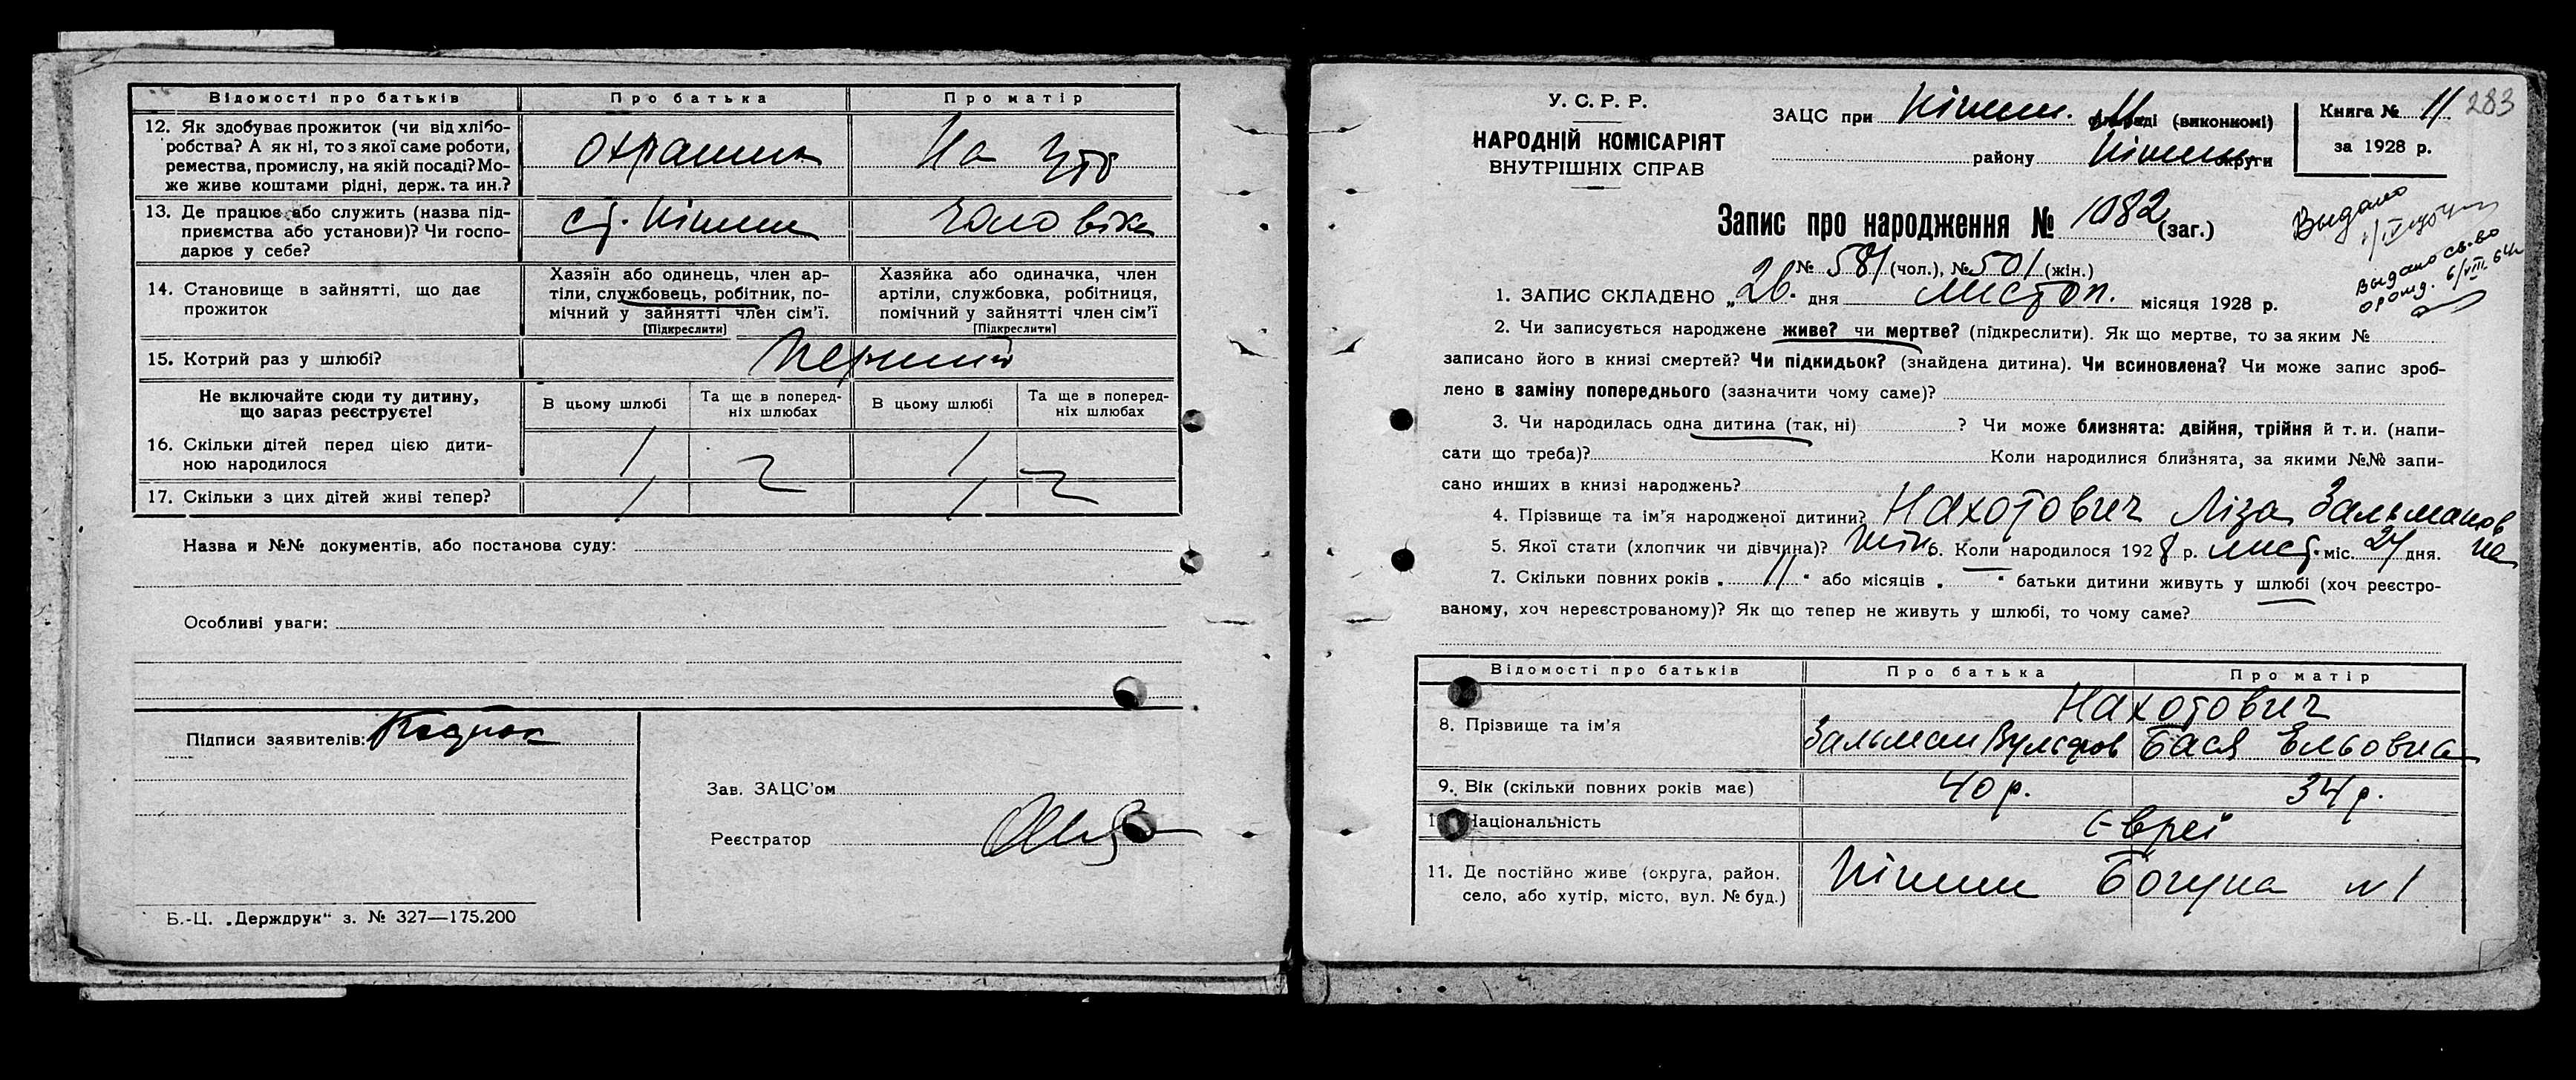 Відомості про батьків Про батька Про матір
12. Як здобуває прожиток (чи від хлібо-
робства? А як ні, то з якої саме роботи,
ремества, промислу, на якій посаді? Мо-
же живе коштами рідні, держ. та ин.?
На утр
13. Де працює або служить (назва під-
приємства або установи)? Чи госпо-
дарює у себе?
ст. Ніжин чоловіка
14. Становище в зайнятті, що дає
прожиток
Хазяїн або одинець, член ар-
тіли, службовець, робітник, по-
мічний у зайнятті член сім'ї.
[Підкреслити]
Хазяйка або одиначка, член
артіли, службовка, робітниця,
помічний у зайнятті член сім'ї
[Підкреслити]
15. Котрий раз у шлюбі? перший
Не включайте сюди ту дитину,
що зараз реєструєте!
В цьому шлюбі
Та ще в поперед-
ніх шлюбах
В цьому шлюбі
Та ще в поперед-
ніх шлюбах
16. Скільки дітей перед цією дити-
ною народилося
1 1
17. Скільки з цих дітей живі тепер? 1 1
Назва и №№ документів, або постанова суду:
Особливі уваги:
Підписи заявителів:
Зав. ЗАЦС'ом
Реєстратор
Б.-Ц. „Держдрук" з. № 327—175.200
У. С. Р. Р.
НАРОДНІЙ КОМІСАРІЯТ
ВНУТРІШНІХ СПРАВ
ЗАЦС при Ніжин. (виконкомі)
району Ніжин округи
Книга № 11
за 1928 р.
283
Запис про народження № 1082 (заг.)
№ 581 (чол.), № 501 (жін.)
Выдано
Выдано св-во
о рожд. 6/VIII 64
1. ЗАПИС СКЛАДЕНО „26" дня листоп. місяця 1928 р.
2. Чи записується народжене живе? чи мертве? (підкреслити). Як що мертве, то за яким №
записано його в книзі смертей? Чи підкидьок? (знайдена дитина). Чи всиновлена? Чи може запис зроб-
лено в заміну попереднього (зазначити чому саме)?
3. Чи народилась одна дитина (так, ні) ? Чи може близнята: двійня, трійня й т. и. (напи-
сати що треба)? Коли народилися близнята, за якими №№ запи-
сано инших в книзі народжень?
4. Прізвище та ім'я народженої дитини? Нахотович Ліза Зальманов
на
5. Якої стати (хлопчик чи дівчина)? жін 6. Коли народилося 1928 р. лист. міс. 21 дня.
7. Скільки повних років „ 11 " або місяців „ " батьки дитини живуть у шлюбі (хоч реєстро-
ваному, хоч нереєстрованому)? Як що тепер не живуть у шлюбі, то чому саме?
Відомості про батьків Про батька Про матір
8. Прізвище та ім'я
Нахотович
Зальман Вульфов Бася Ельовна
9. Вік (скільки повних років має) 40 р. 34 р.
Національність євреї
11. Де постійно живе (округа, район,
село, або хутір, місто, вул. № буд.)
Ніжин Богуна № 1